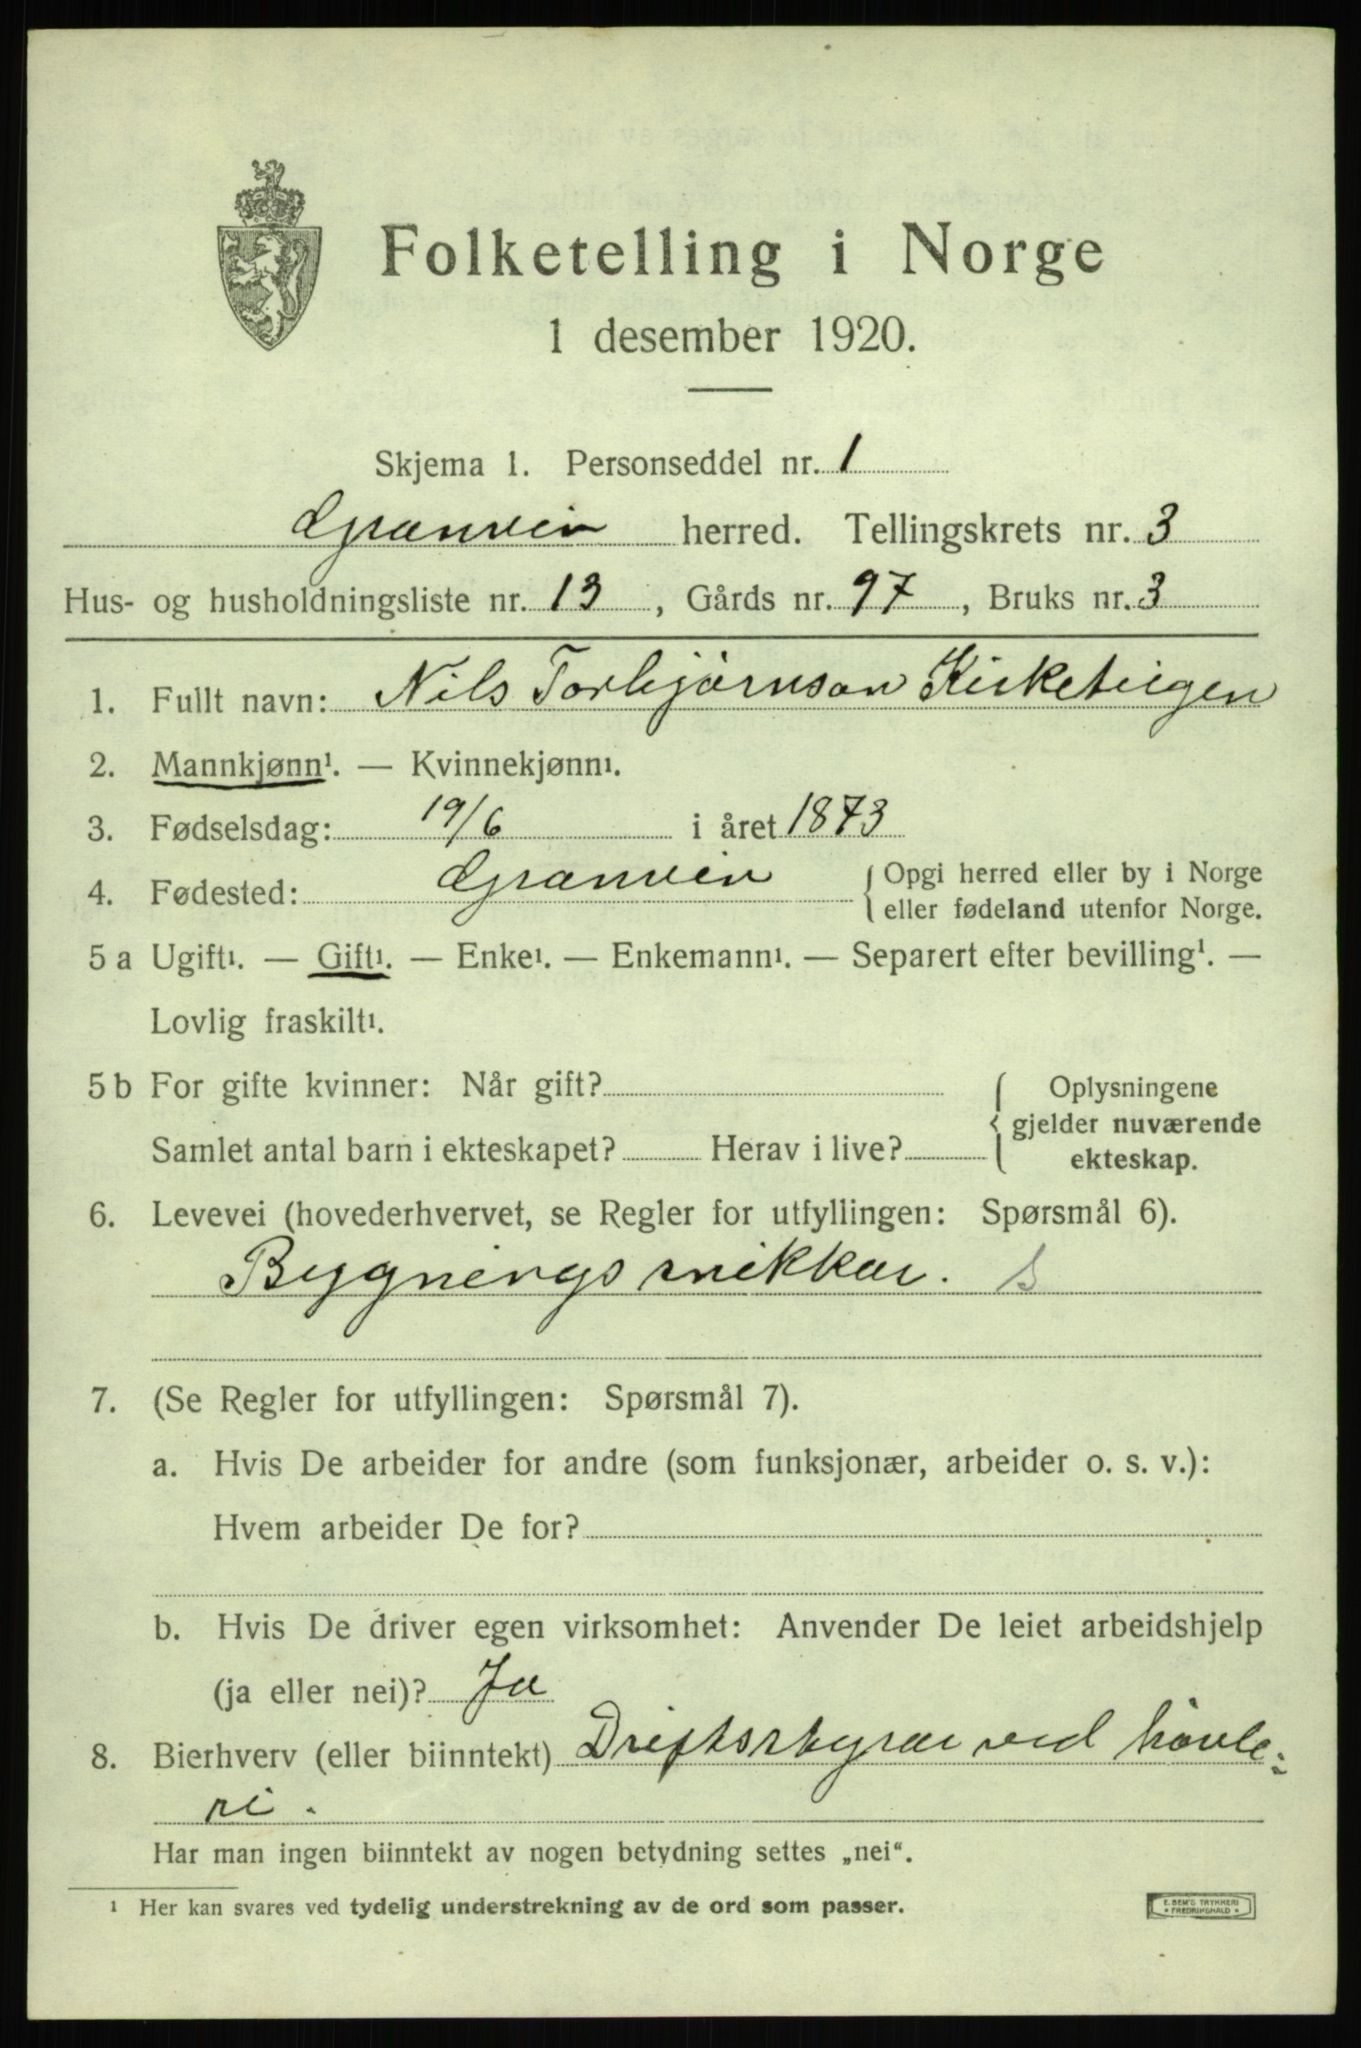 Folketelling i Norge
1 desember 1920.
Skjema 1. Personseddel nr. 1
Granvin herred. Tellingskrets nr. 3
Hus- og husholdningsliste nr. 13, Gårds nr. 97, Bruks nr. 3
1. Fullt navn: Nils Torbjørnson Kirketeigen
2. Mannkjønn¹. — Kvinnekjønn¹.
3. Fødselsdag: 19/6 i året 1873
4. Fødested: Granvin { Opgi herred eller by i Norge
eller fødeland utenfor Norge.
5 a Ugift¹. — Gift¹. — Enke¹. — Enkemann¹. — Separert efter bevilling¹. —
Lovlig fraskilt¹.
5 b For gifte kvinner: Når gift?
Samlet antal barn i ekteskapet? Herav i live?
{ Oplysningene
gjelder nuværende
ekteskap.
6. Levevei (hovederhvervet, se Regler for utfyllingen: Spørsmål 6).
Bygningssnikkar. s
7. (Se Regler for utfyllingen: Spørsmål 7).
a. Hvis De arbeider for andre (som funksjonær, arbeider o. s. v.):
Hvem arbeider De for?
b. Hvis De driver egen virksomhet: Anvender De leiet arbeidshjelp
(ja eller nei)? Ja
8. Bierhverv (eller biinntekt) Driftsstyrar ved høvle-
ri.
Har man ingen biinntekt av nogen betydning settes „nei“.
¹ Her kan svares ved tydelig understrekning av de ord som passer.
E. SEM'S TRYKKERI
• FREDRIKSHALD •